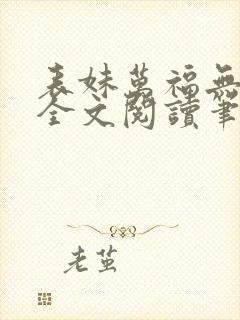 表妹萬福無
全文閱讀筆
老茧